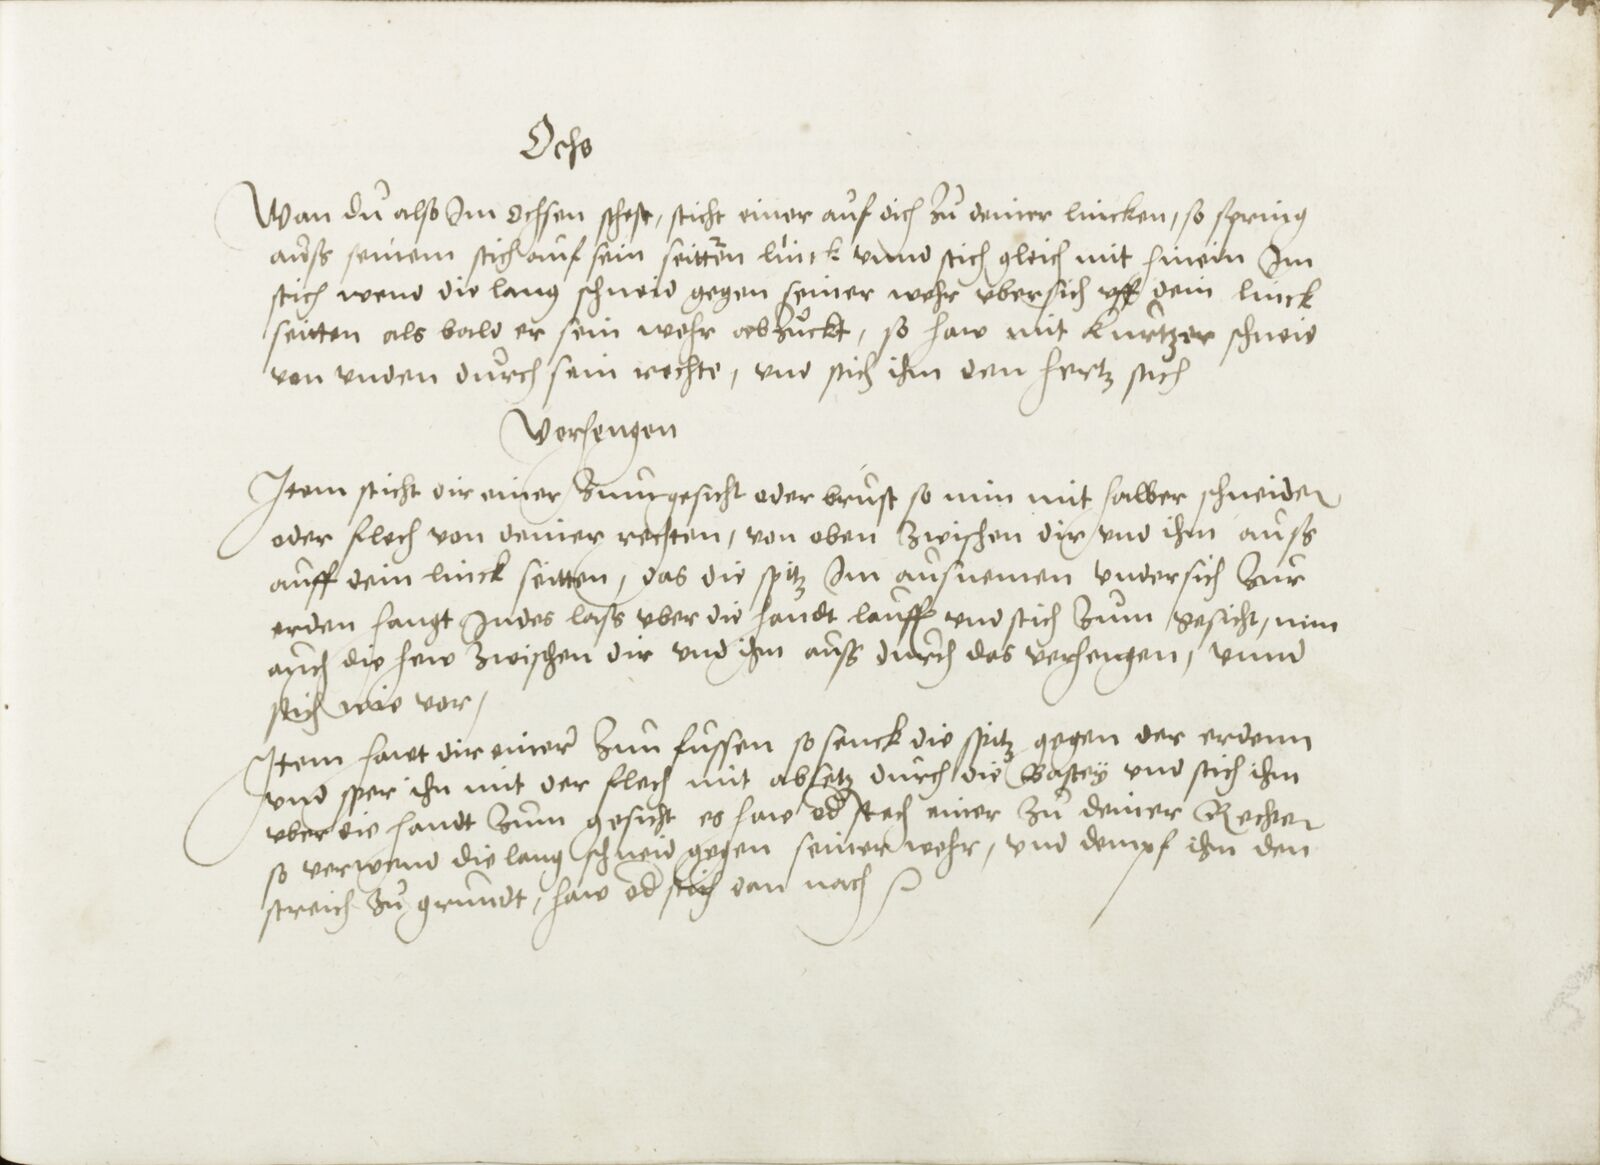 Ochs
Wan du also Im Ochsen stehest, sticht einer auf dich zu deiner lincken, so spring
auss seinem stich auf sein seitten linck vnnd stich gleich mit hinein Im
stich wend die lang schneid gegen seiner wehr vbersich vff dein linck
seitten als bald er sein wehr abzuckt, so haw mit kurtzer schneid
von vnden durch sein rechte, vnd stich ihm den hertz stich
Verhengen
Item sticht dir einer zum gesicht oder brust so nim mit halber schneiden
oder flech von deiner rechten, von oben zwischen dir vnd ihm auss
auff dein linck seitten, das die spitz Im ausnemen vndersich zur
erden hangt Indes lass vber die handt lauff vnd stich zum gesicht, nim
auch die hew zwischen dir vnd ihm auss durch das verhengen, vnnd
stich wie vor,
Item hawt dir einer zun fussen so senck die spitz gegen der erdenn
vnd sper ihn mit der flech mit absetz durch die Bastey vnd stich ihm
vber die handt zum gesicht es haw od stech einer zu deiner Rechten
so verwend die lang schneid gegen seiner wehr, vnd dempf ihm den
streich zu grundt, haw od stich dan nach